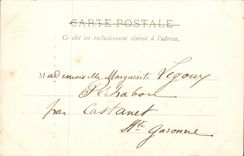 CARTE POSTALE
Ce côté est exclusivement réservé à l'adresse.
Mademoiselle Marguerite Vegouy
Péchabou
par Castanet
Hte Garonne